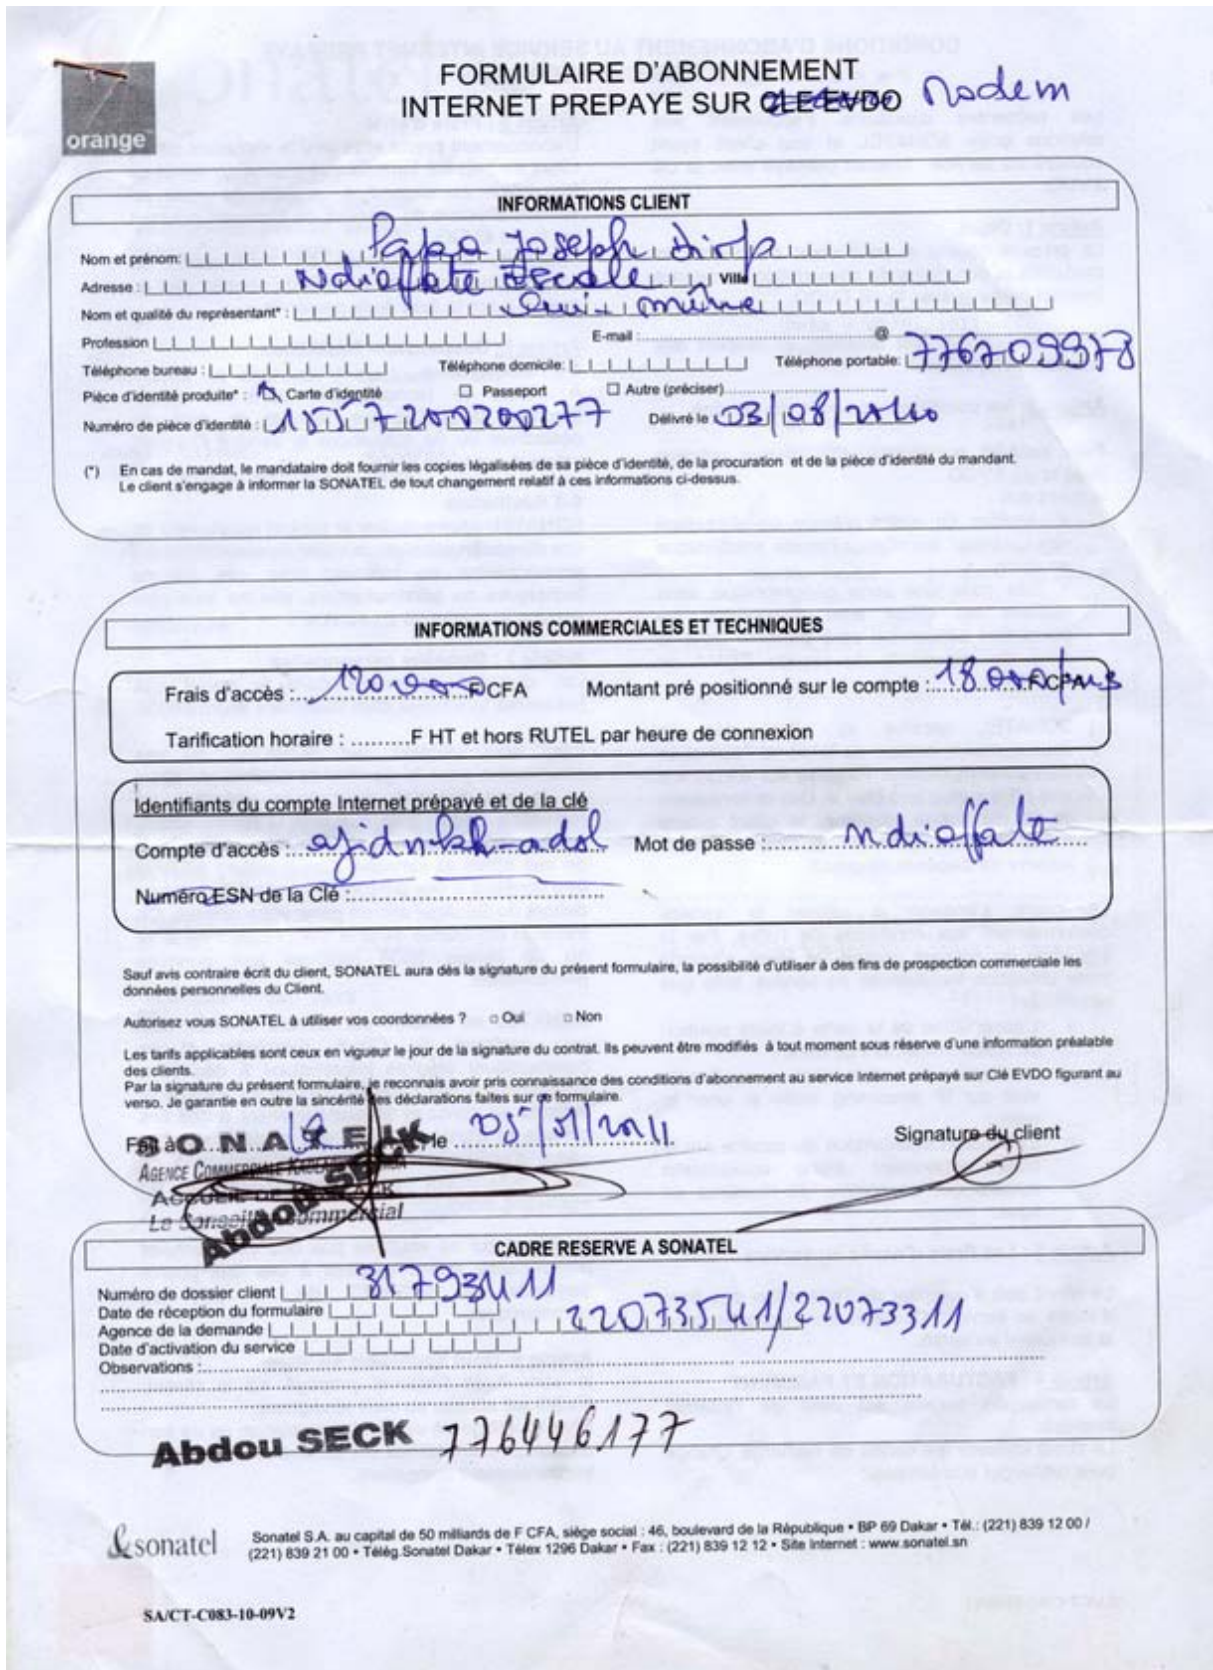 orange
FORMULAIRE D'ABONNEMENT
INTERNET PREPAYE SUR CLE EVDO Modem
INFORMATIONS CLIENT
Nom et prénom: Papa Joseph
Adresse : Ndiaffate Escale Ville
Nom et qualité du représentant* : lui même
Profession E-mail : @
Téléphone bureau : Téléphone domicile: Téléphone portable: 776709978
Pièce d'identité produite* : Carte d'identité Passeport Autre (préciser)
Numéro de pièce d'identité : 1557200200277 Délivré le : 03/08/2010
(*) En cas de mandat, le mandataire doit fournir les copies légalisées de sa pièce d'identité, de la procuration et de la pièce d'identité du mandant.
Le client s'engage à informer la SONATEL de tout changement relatif à ces informations ci-dessus.
INFORMATIONS COMMERCIALES ET TECHNIQUES
Frais d'accès : FCFA Montant pré positionné sur le compte : 18 000 FCFA
Tarification horaire : .........F HT et hors RUTEL par heure de connexion
Identifiants du compte Internet prépayé et de la clé
Compte d'accès : Mot de passe : ndiaffate
Numéro ESN de la Clé :
Sauf avis contraire écrit du client, SONATEL aura dés la signature du présent formulaire, la possibilité d'utiliser à des fins de prospection commerciale les
données personnelles du Client.
Autorisez vous SONATEL à utiliser vos coordonnées ? Oui Non
Les tarifs applicables sont ceux en vigueur le jour de la signature du contrat. Ils peuvent être modifiés à tout moment sous réserve d'une information préalable
des clients.
Par la signature du présent formulaire, je reconnais avoir pris connaissance des conditions d'abonnement au service Internet prépayé sur Clé EVDO figurant au
verso. Je garantie en outre la sincérité des déclarations faites sur ce formulaire.
Fait à le 05/01/2011 Signature du client
SONATEL
AGENCE COMMERCIALE
Le Conseiller Commercial
Abdou SECK
CADRE RESERVE A SONATEL
Numéro de dossier client 31793411
Date de réception du formulaire
Agence de la demande 22073541/22073311
Date d'activation du service
Observations :
Abdou SECK 776446177
sonatel
Sonatel S.A. au capital de 50 milliards de F CFA, siège social : 46, boulevard de la République • BP 69 Dakar • Tél.: (221) 839 12 00 /
(221) 839 21 00 • Télég.Sonatel Dakar • Télex 1296 Dakar • Fax : (221) 839 12 12 • Site Internet : www.sonatel.sn
SA/CT-C083-10-09V2